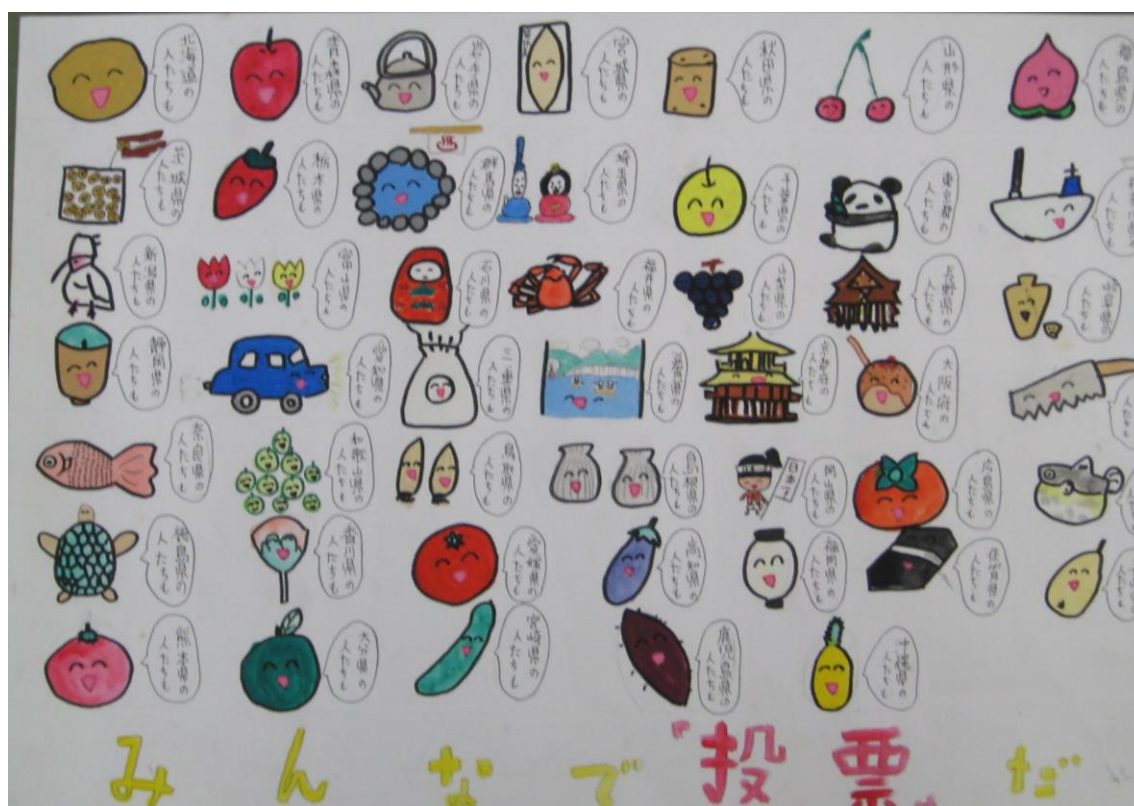 北海道の
人たちも
青森県の
人たちも
岩手県の
人たちも
宮城県の
人たちも
秋田県の
人たちも
山形県の
人たちも
福島県の
人たちも
茨城県の
人たちも
栃木県の
人たちも
群馬県の
人たちも
埼玉県の
人たちも
千葉県の
人たちも
東京都の
人たちも
人たちも
新潟県の
人たちも
富山県の
人たちも
石川県の
人たちも
福井県の
人たちも
山梨県の
人たちも
長野県の
人たちも
岐阜県の
人たちも
静岡県の
人たちも
愛知県の
人たちも
三重県の
人たちも
滋賀県の
人たちも
京都府の
人たちも
大阪府の
人たちも
奈良県の
人たちも
和歌山県の
人たちも
鳥取県の
人たちも
島根県の
人たちも
岡山県の
人たちも
広島県の
人たちも
徳島県の
人たちも
香川県の
人たちも
愛媛県の
人たちも
高知県の
人たちも
福岡県の
人たちも
佐賀県の
人たちも
熊本県の
人たちも
大分県の
人たちも
宮崎県の
人たちも
鹿児島県の
人たちも
沖縄県の
人たちも
みんなで『投票』だ